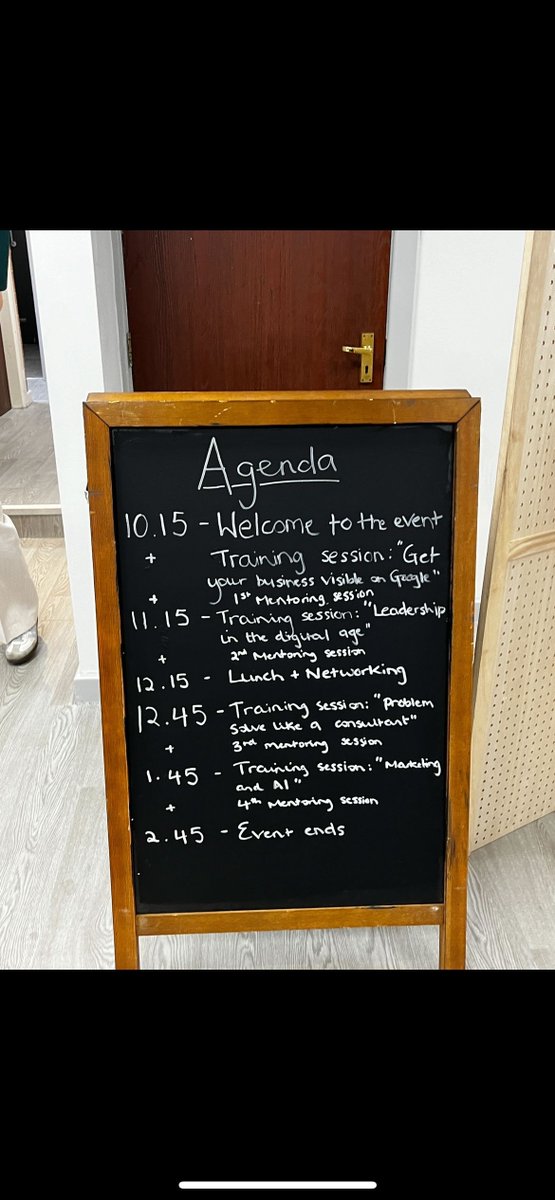 Agenda
10.15 - Welcome to the event
+ Training session: "Get
your business visible on Google"
+ 1st Mentoring session
11.15 - Training session: "Leadership
in the digital age"
+ 2nd Mentoring session
12.15 - Lunch + Networking
12.45 - Training session: "Problem
solve like a consultant"
+ 3rd mentoring session
1.45 - Training session: "Marketing
and AI"
+ 4th Mentoring session
2.45 - Event ends